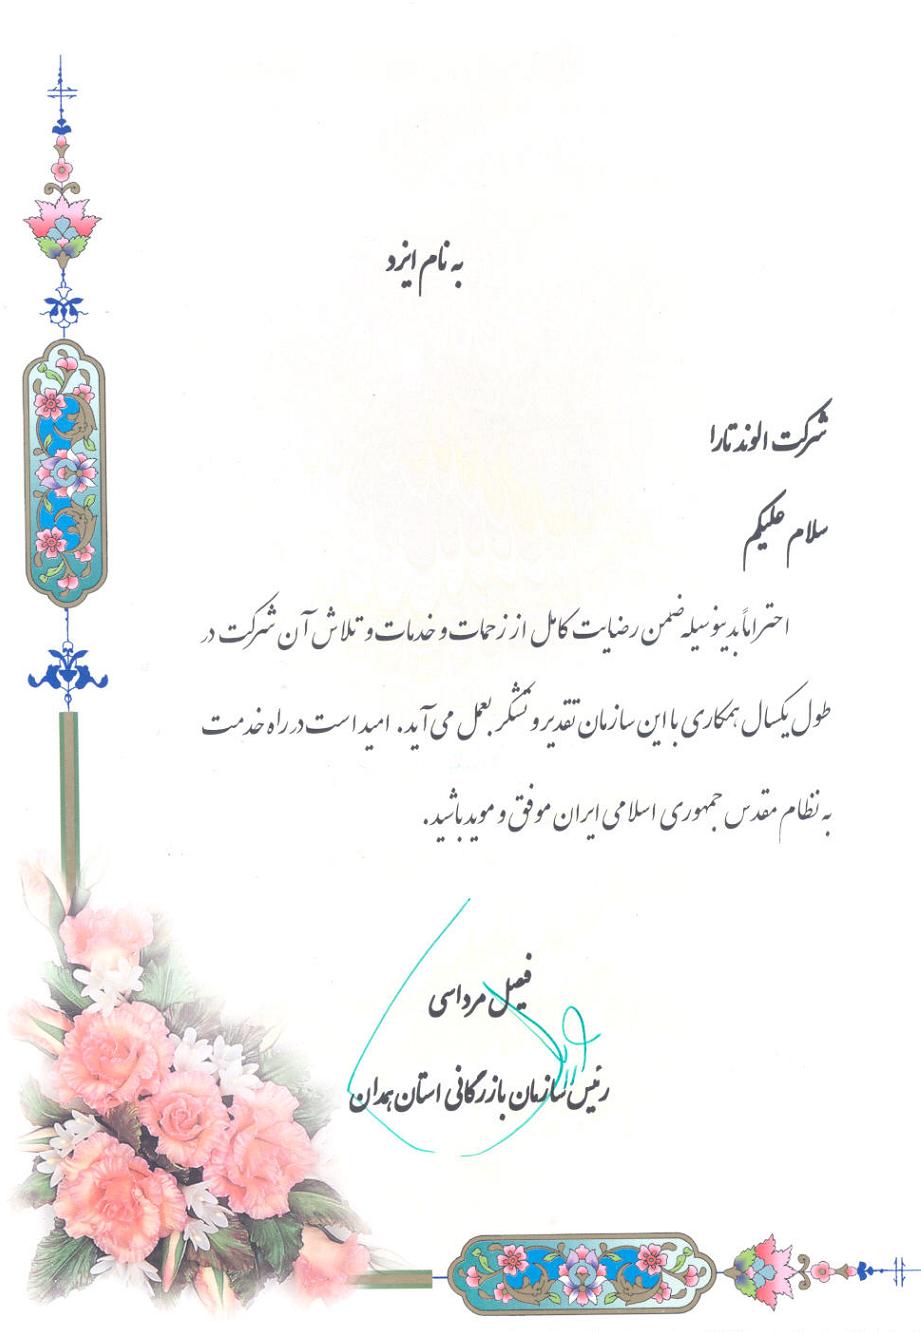 به نام ایزد
شرکت الوند تارا
سلام علیکم
احتراماً بدینوسیله ضمن رضایت کامل از زحمات و خدمات و تلاش آن شرکت در
طول یکسال همکاری با این سازمان تقدیر و تشکر بعمل می آید. امید است در راه خدمت
به نظام مقدس جمهوری اسلامی ایران موفق و موید باشید.
فیصل مرداسی
رئیس سازمان بازرگانی استان همدان